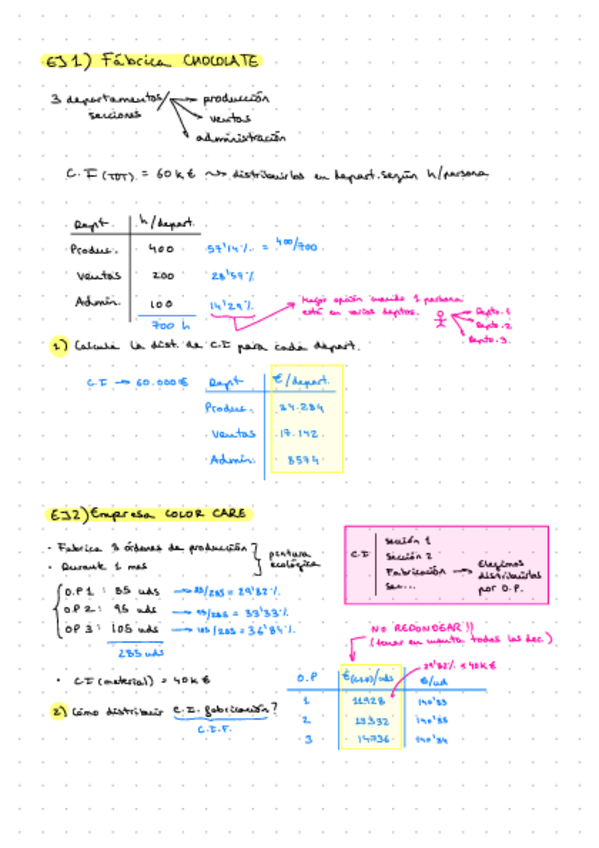 EJ1) Fábrica CHOCOLATE
3 departamentos/ → producción
secciones → ventas
→ administración
C.I (TOT) = 60k € ⤳ distribuirlos en depart. según h/persona
Dept. h/depart.
Produc. 400 57'14% = 400/700
Ventas 200 28'57%
Admin. 100 14'29%
700 h
Mejor opción cuando 1 persona
está en varios deptos.
Depto. 1
Depto. 2
Depto. 3
1) Calcula la dist. de C.I para cada depart.
C.I → 60.000€ Dept €/depart.
Produc. 34.284
Ventas 17.142
Admin. 8574
EJ2) Empresa COLOR CARE
· Fabrica 3 órdenes de producción
· Durante 1 mes
pintura
ecológica
O.P 1 : 85 uds → 85/285 = 29'82%
O.P 2 : 95 uds → 95/285 = 33'33%
OP 3 : 105 uds → 105/285 = 36'84%
285 uds
C.I
Sección 1
Sección 2
Fabricación → Elegimos
distribuirlos
por O.P.
Sec...
NO REDONDEAR!!
(tener en cuenta todos los dec.)
29'82% × 40k€
· C.I (material) = 40k €
2) Cómo distribuir C.I. fabricación?
C.I.F.
O.P €/uds €/ud
1 11928 140'33
2 13332 140'33
3 14736 140'34